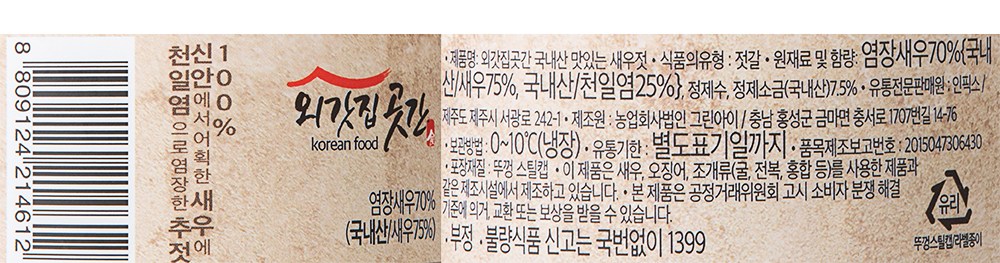 8 809124 214612
100%
신안에서어획한 새우에
천일염으로염장한 추젓
외갓집곳간
korean food
염장새우70%
(국내산/새우75%)
· 제품명: 외갓집곳간 국내산 맛있는 새우젓 · 식품의유형 : 젓갈 · 원재료 및 함량: 염장새우70%{국내
산/새우75%, 국내산/천일염25%}, 정제수, 정제소금(국내산)7.5% · 유통전문판매원 : 인픽스/
제주도 제주시 서광로 242-1 · 제조원 : 농업회사법인 그린아이 / 충남 홍성군 금마면 충서로 1707번길 14-76
· 보관방법 : 0~10℃(냉장) · 유통기한 : 별도표기일까지 · 품목제조보고번호 : 2015047306430
· 포장재질 : 뚜껑 스틸캡 · 이 제품은 새우, 오징어, 조개류(굴, 전복, 홍합 등)를 사용한 제품과
같은 제조시설에서 제조하고 있습니다. · 본 제품은 공정거래위원회 고시 소비자 분쟁 해결
기준에 의거, 교환 또는 보상을 받을 수 있습니다.
· 부정 · 불량식품 신고는 국번없이 1399
유리
뚜껑스틸캡/라벨종이